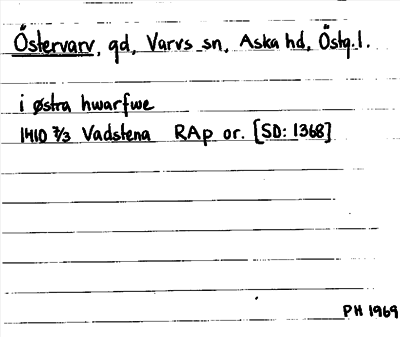 Östervarv, gd, Varvs sn, Aska hd, Östg.l.
i østra hwarfwe
1410 7/3 Vadstena RAp or. [SD: 1368]
PH 1969